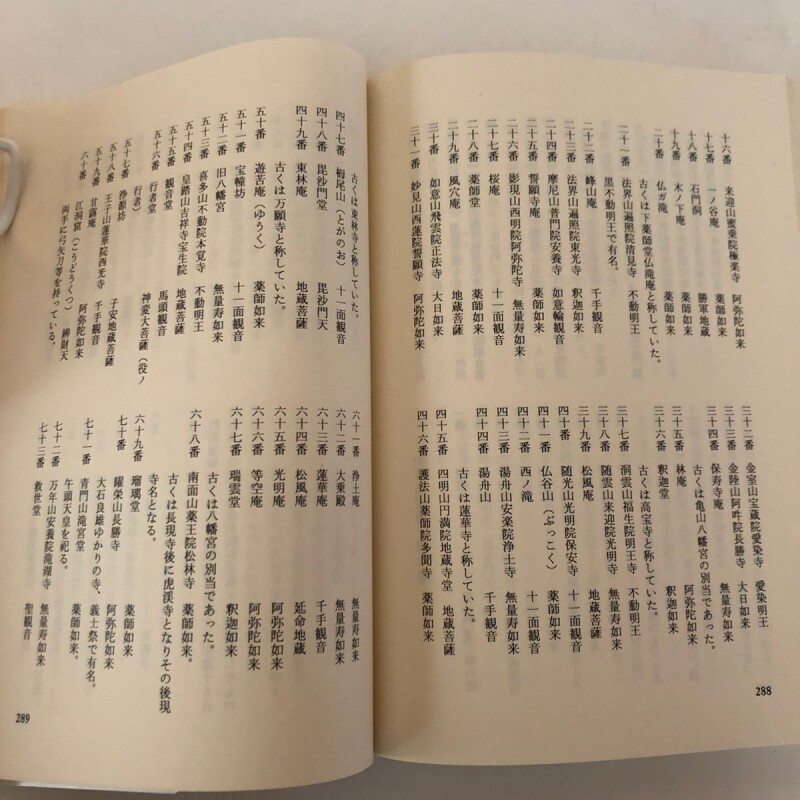 十六番 来迎山蜜乗院極楽寺 阿弥陀如来
十七番 一ノ谷庵 十一面観音
十八番 石門洞 勝軍地蔵
十九番 木ノ下庵 薬師如来
二十番 仏ガ滝 薬師如来
古くは下薬師堂仏滝庵と称していた。
二十一番 法界山遍照院清見寺 不動明王
黒不動明王で有名。
二十二番 峰山庵 千手観音
二十三番 法界山遍照院東光寺 釈迦如来
二十四番 摩尼山普門院安養寺 如意輪観音
二十五番 誓願寺庵 薬師如来
二十六番 影現山西明院阿弥陀寺 無量寿如来
二十七番 桜庵 十一面観音
二十八番 薬師堂 薬師如来
二十九番 風穴庵 地蔵菩薩
三十番 如意山飛雲院正法寺 大日如来
三十一番 妙見山西蓮院誓願寺 阿弥陀如来
三十二番 金室山宝蔵院愛染寺 愛染明王
三十三番 金陸山阿吽院長勝寺 大日如来
三十四番 保寿寺庵 無量寿如来
古くは亀山八幡宮の別当であった。
三十五番 林庵 阿弥陀如来
三十六番 釈迦堂 釈迦如来
古くは高宝寺と称していた。
三十七番 洞雲山福生院明王寺 不動明王
三十八番 雲山来迎院光明寺 無量寿如来
三十九番 松風庵 地蔵菩薩
四十番 随光山光明院保安寺 十一面観音
四十一番 仏谷山(ぶっこく) 薬師如来
四十二番 西ノ滝 十一面観音
四十三番 湯舟山安楽院浄土寺 無量寿如来
四十四番 湯舟山 千手観音
古くは蓮華寺と称していた。
四十五番 四明山円満院地蔵寺堂 地蔵菩薩
四十六番 護法山薬師院多聞寺 薬師如来
288
古くは東林寺と称していた。
四十七番 栂尾山(とがのお) 十一面観音
四十八番 毘沙門堂 毘沙門天
四十九番 東林庵 地蔵菩薩
古くは万願寺と称していた。
五十番 遊苦庵(ゆうく) 薬師如来
五十一番 宝幢坊 十一面観音
五十二番 旧八幡宮 無量寿如来
五十三番 喜多山不動院本覚寺 不動明王
五十四番 皇踏山吉祥寺宝生院 地蔵菩薩
五十五番 観音堂 馬頭観音
五十六番 行者堂 神変大菩薩(役ノ
行者)
五十七番 浄源坊 子安地蔵菩薩
五十八番 王子山蓮華院西光寺 千手観音
五十九番 甘露庵 阿弥陀如来
六十番 江洞窟(こうどうくつ) 辨財天
両手に弓矢刀等を持っている。
六十一番 浄土庵 無量寿如来
六十二番 大乗殿 無量寿如来
六十三番 蓮華庵 千手観音
六十四番 松風庵 延命地蔵
六十五番 光明庵 阿弥陀如来
六十六番 等空庵 阿弥陀如来
六十七番 瑞雲堂 釈迦如来
古くは八幡宮の別当であった。
六十八番 南面山薬王院松林寺 薬師如来。
古くは長現寺後に虎渓寺となりその後現
寺名となる。
六十九番 瑠璃堂 薬師如来
七十番 曜栄山長勝寺 阿弥陀如来
大石良雄ゆかりの寺、義士祭で有名。
七十一番 青門山滝宮堂 薬師如来。
午頭天皇を祀る。
七十二番 万年山安養院滝湖寺 無量寿如来
七十三番 救世堂 聖観音
289